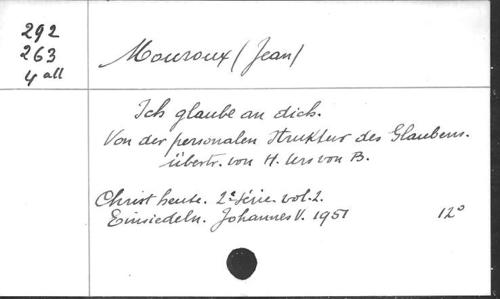 292
263
4 all
Mouroux (Jean)
Ich glaube an dich.
Von der personalen Struktur des Glaubens.
übertr. von H. Urs von B.
Christ heute. 2e série. vol. 2.
Einsiedeln. Johannes V. 1951 12°